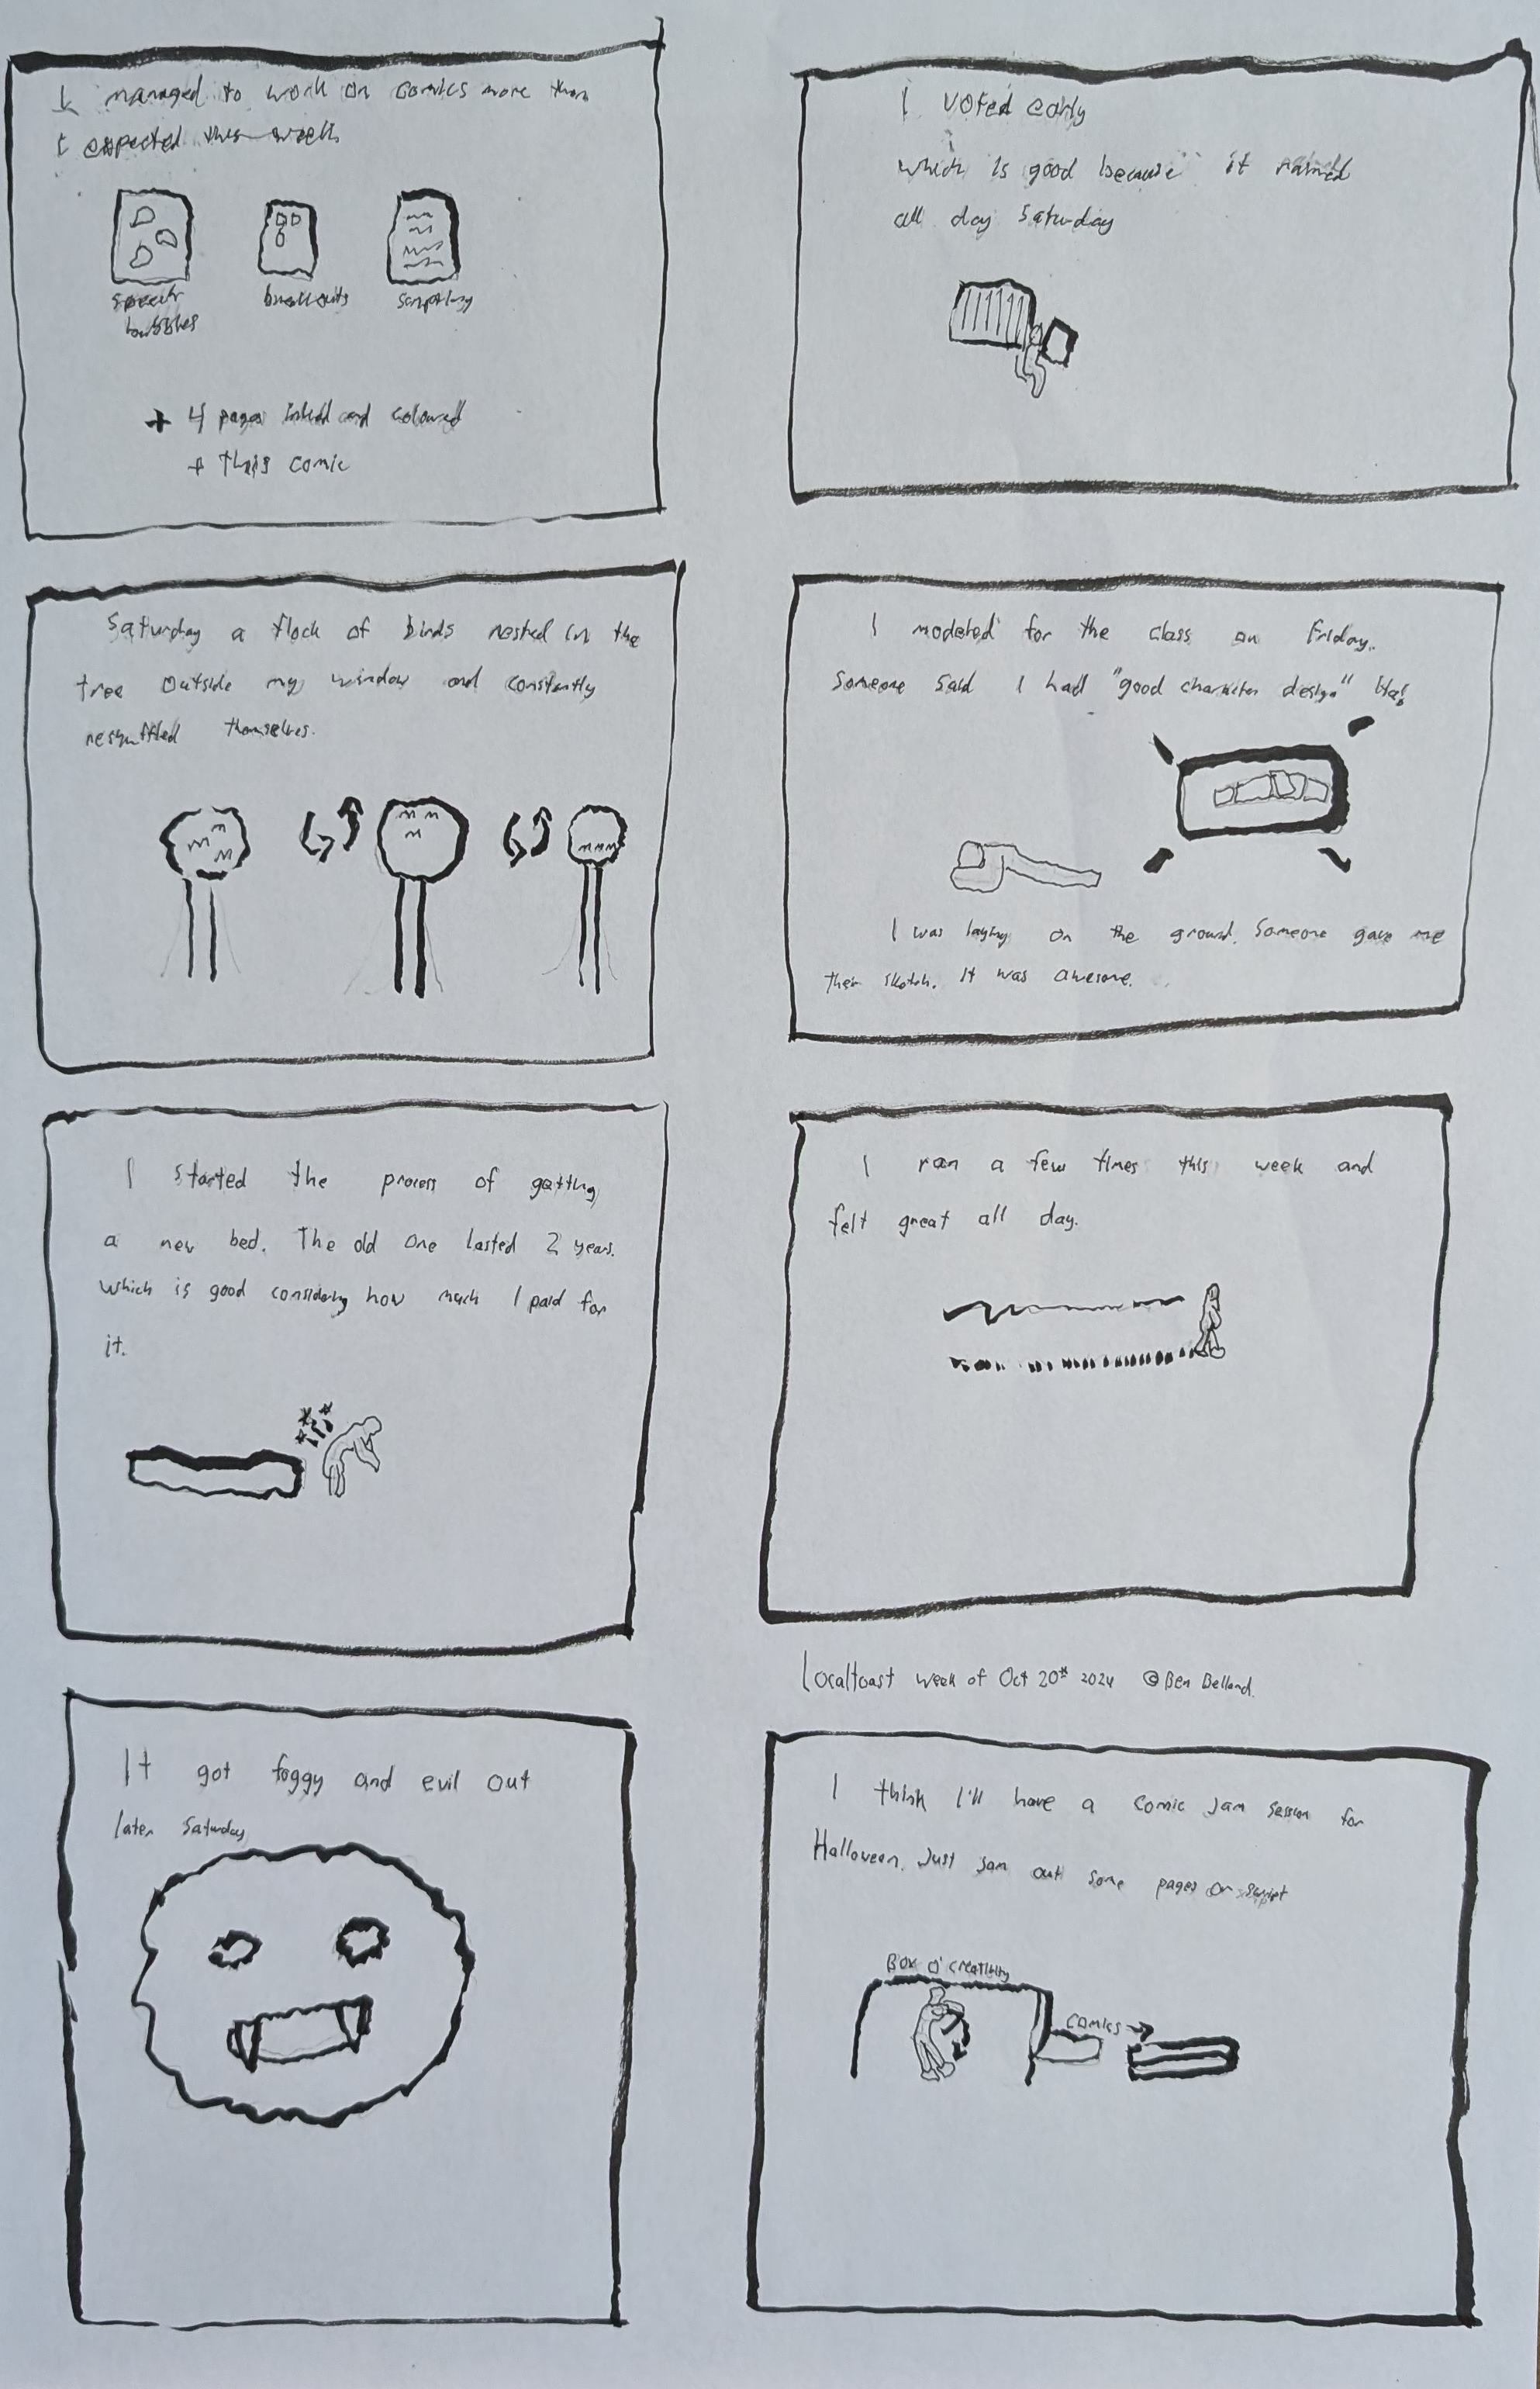 I managed to work on comics more than
I expected this week
speech
bubbles
breakouts
scripting
+ 4 pages inked and coloured
+ this comic
I voted early
which is good because it rained
all day Saturday
Saturday a flock of birds nested in the
tree outside my window and constantly
reshuffled themselves.
I modeled for the class on Friday.
Someone said I had "good character design" Ha!
I was laying on the ground. Someone gave me
their sketch. It was awesome.
I started the process of getting
a new bed. The old one lasted 2 years.
Which is good considering how much I paid for
it.
I ran a few times this week and
felt great all day.
Localtoast week of Oct 20th 2024 © Ben Belland.
It got foggy and evil out
later Saturday
I think I'll have a comic jam session for
Halloween. Just jam out some pages or script
Box O' Creativity
Comics →